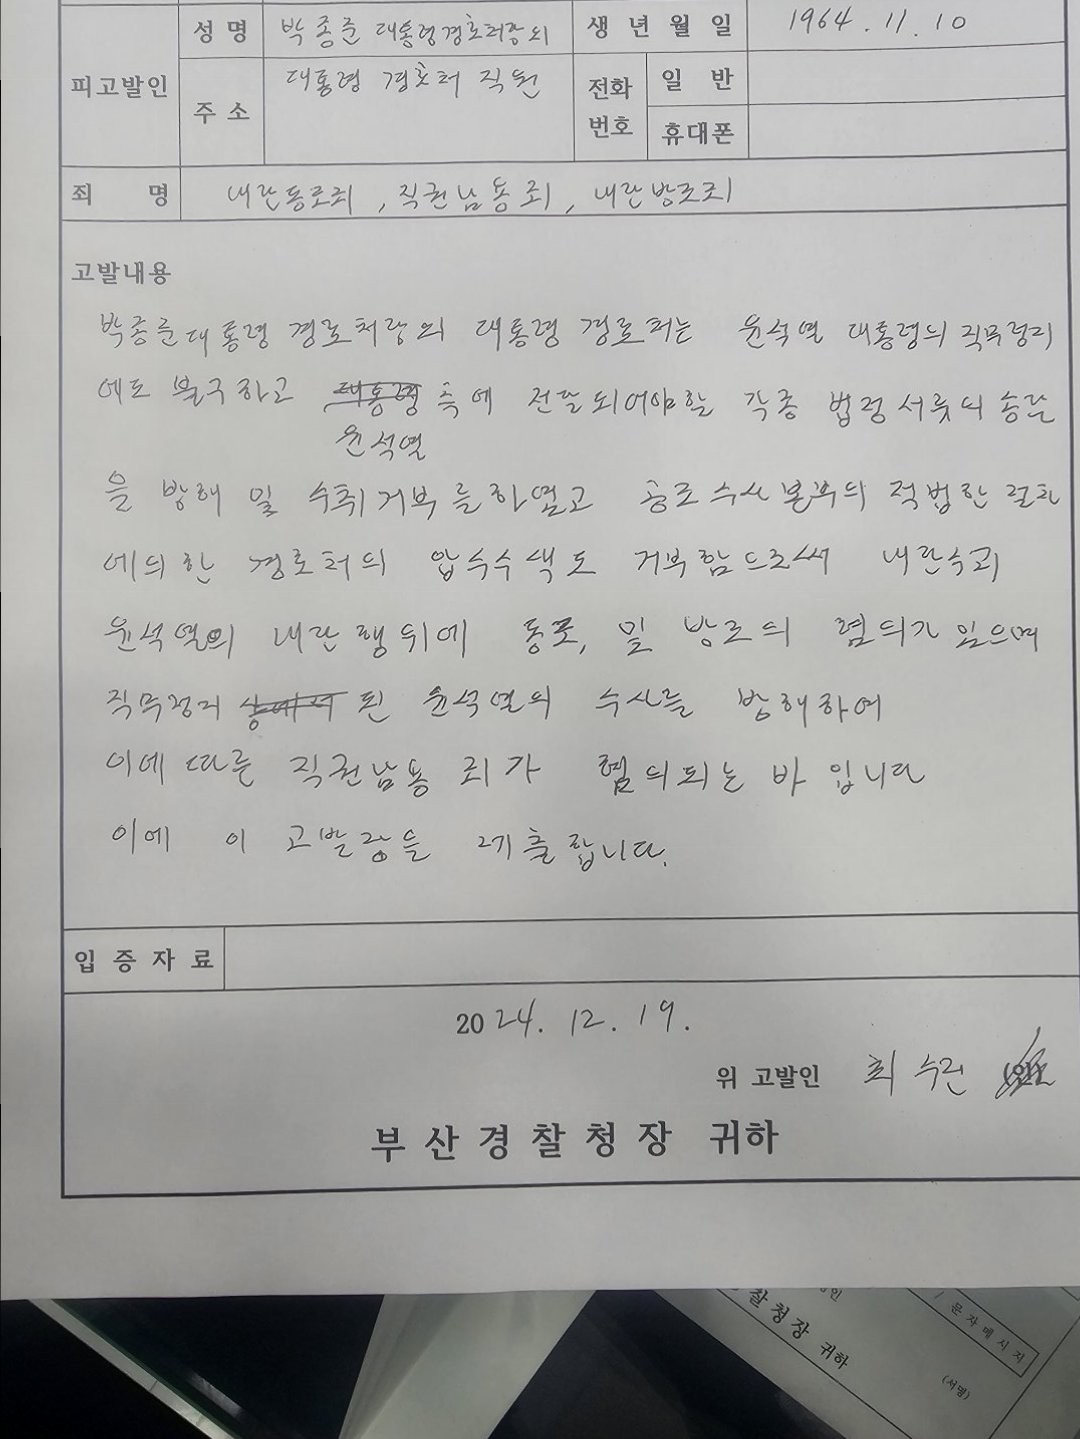 피고발인
성 명 박종준 대통령경호처장외 생 년 월 일 1964. 11. 10
주 소 대통령 경호처 직원 전화번호 일 반
휴대폰
죄 명 내란동조죄, 직권남용죄, 내란방조죄
고발내용
박종준대통령 경호처장외 대통령 경호처는 윤석열 대통령의 직무정지
에도 불구하고 대통령 측에 전달되어야할 각종 법정서류의 송달
윤석열
을 방해 및 수취거부를하였고 공조수사본부의 적법한 절차
에의한 경호처의 압수수색도 거부함으로써 내란수괴
윤석열의 내란행위에 동조, 및 방조의 혐의가 있으며
직무정지 상에서 된 윤석열의 수사를 방해하여
이에 따른 직권남용 죄가 혐의되는 바 입니다
이에 이 고발장을 제출합니다.
입 증 자 료
2024. 12. 19.
위 고발인 최수린 (인)
부 산 경 찰 청 장 귀하
찰 청 장 귀하
/ 문 자 메 시 지
(서명)